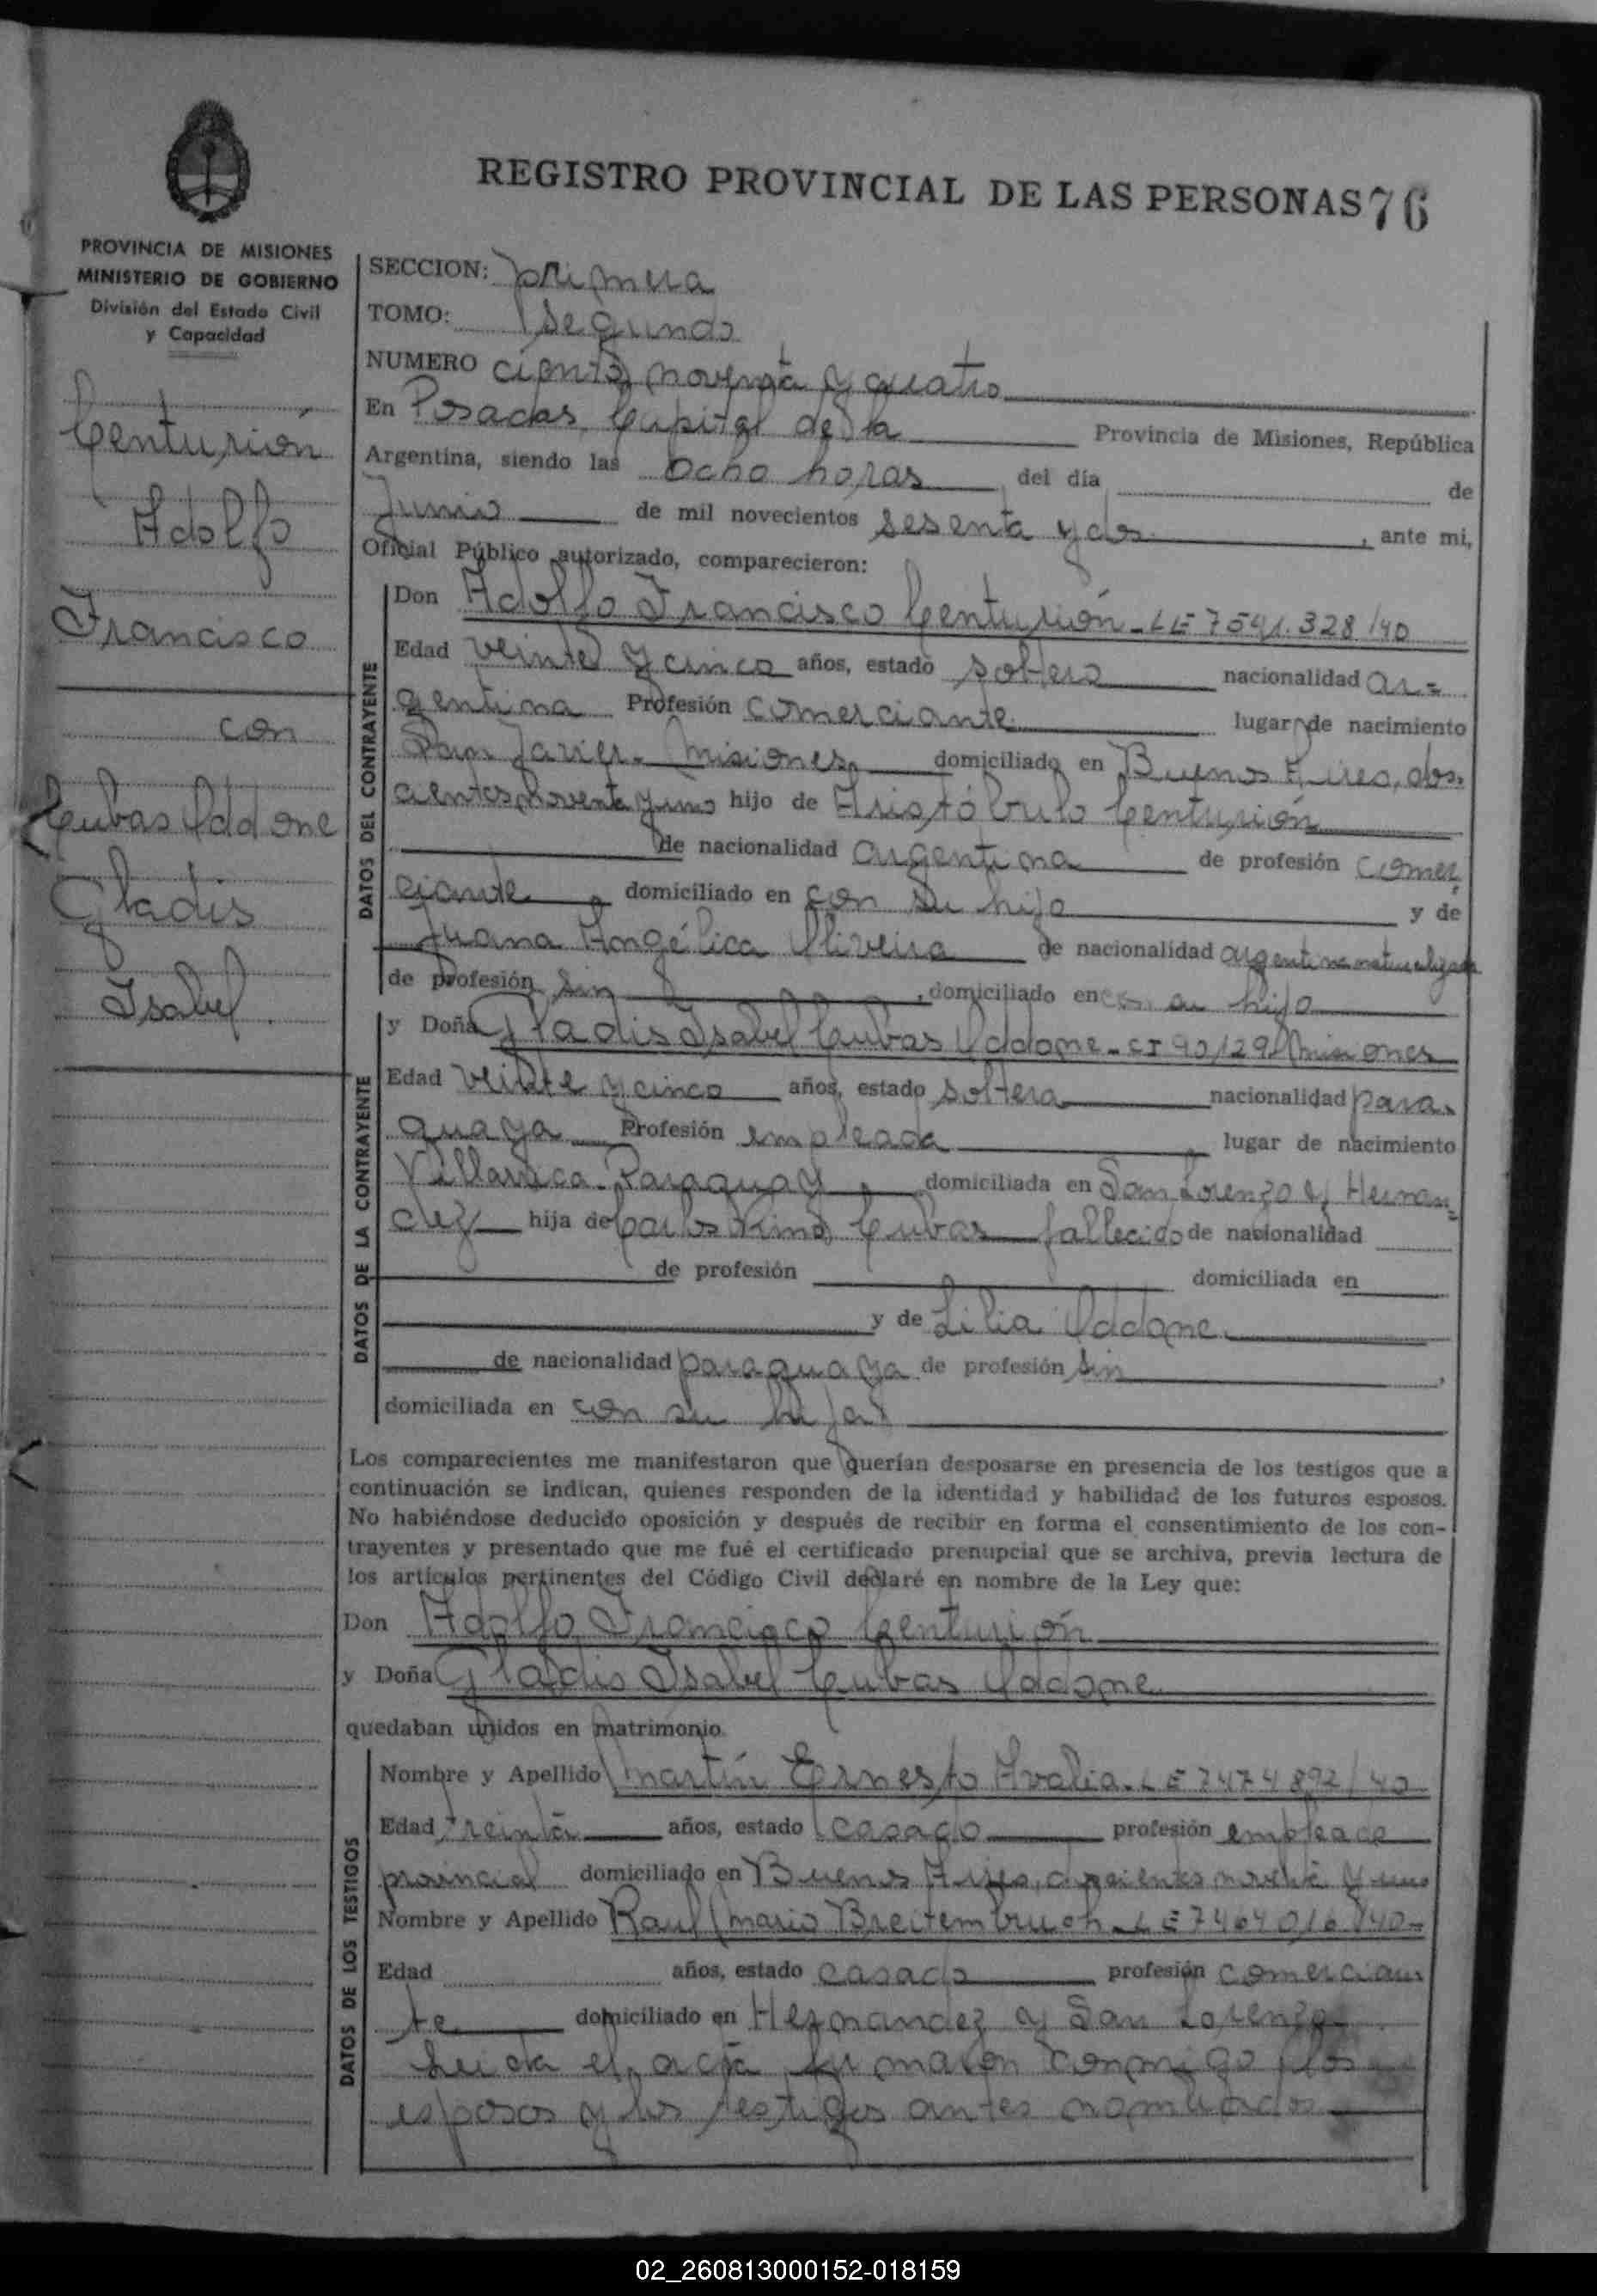 REGISTRO PROVINCIAL DE LAS PERSONAS 76
PROVINCIA DE MISIONES
MINISTERIO DE GOBIERNO
División del Estado Civil
y Capacidad
Centurión
Adolfo
Francisco
con
Cubas Oddone
Gladis
Isabel
SECCION: primera
TOMO: Segundo
NUMERO ciento noventa y cuatro
En Posadas, Capital de la Provincia de Misiones, República
Argentina, siendo las ocho horas del día de
Junio de mil novecientos sesenta y dos, ante mi,
Oficial Público autorizado, comparecieron:
DATOS DEL CONTRAYENTE
Don Adolfo Francisco Centurión - LE 7541.328/40
Edad veinte y cinco años, estado soltero nacionalidad ar=
gentina Profesión comerciante lugar de nacimiento
San Javier - Misiones, domiciliado en Buenos Aires, dos-
cientos noventa y uno hijo de Aristóbulo Centurión
de nacionalidad argentina de profesión comer
ciante, domiciliado en con su hijo y de
Juana Angélica Oliveira de nacionalidad argentina naturalizada
de profesión sin, domiciliado en con su hijo
DATOS DE LA CONTRAYENTE
y Doña Gladis Isabel Cubas Oddone - CI 90129 Misiones
Edad veinte y cinco años, estado soltera nacionalidad para-
guaya Profesión empleada lugar de nacimiento
Villarrica - Paraguay, domiciliada en San Lorenzo y Hernan=
dez hija de Carlos Cubas fallecido de nacionalidad
de profesión domiciliada en
y de Lilia Oddone
de nacionalidad paraguaya de profesión sin,
domiciliada en con su hija
Los comparecientes me manifestaron que querían desposarse en presencia de los testigos que a
continuación se indican, quienes responden de la identidad y habilidad de los futuros esposos.
No habiéndose deducido oposición y después de recibir en forma el consentimiento de los con-
trayentes y presentado que me fué el certificado prenupcial que se archiva, previa lectura de
los artículos pertinentes del Código Civil declaré en nombre de la Ley que:
Don Adolfo Francisco Centurión
y Doña Gladis Isabel Cubas Oddone
quedaban unidos en matrimonio.
DATOS DE LOS TESTIGOS
Nombre y Apellido Martín Ernesto Avalia - LE 7474892/40
Edad treinta años, estado casado profesión empleado
provincial domiciliado en Buenos Aires, doscientos noventa y uno
Nombre y Apellido Raul Mario Breitembruch - LE 7464016/40-
Edad años, estado casado profesión comercian-
te domiciliado en Hernandez y San Lorenzo
Leida el acta firmaron conmigo los
esposos y los testigos antes nombrados
02_260813000152-018159